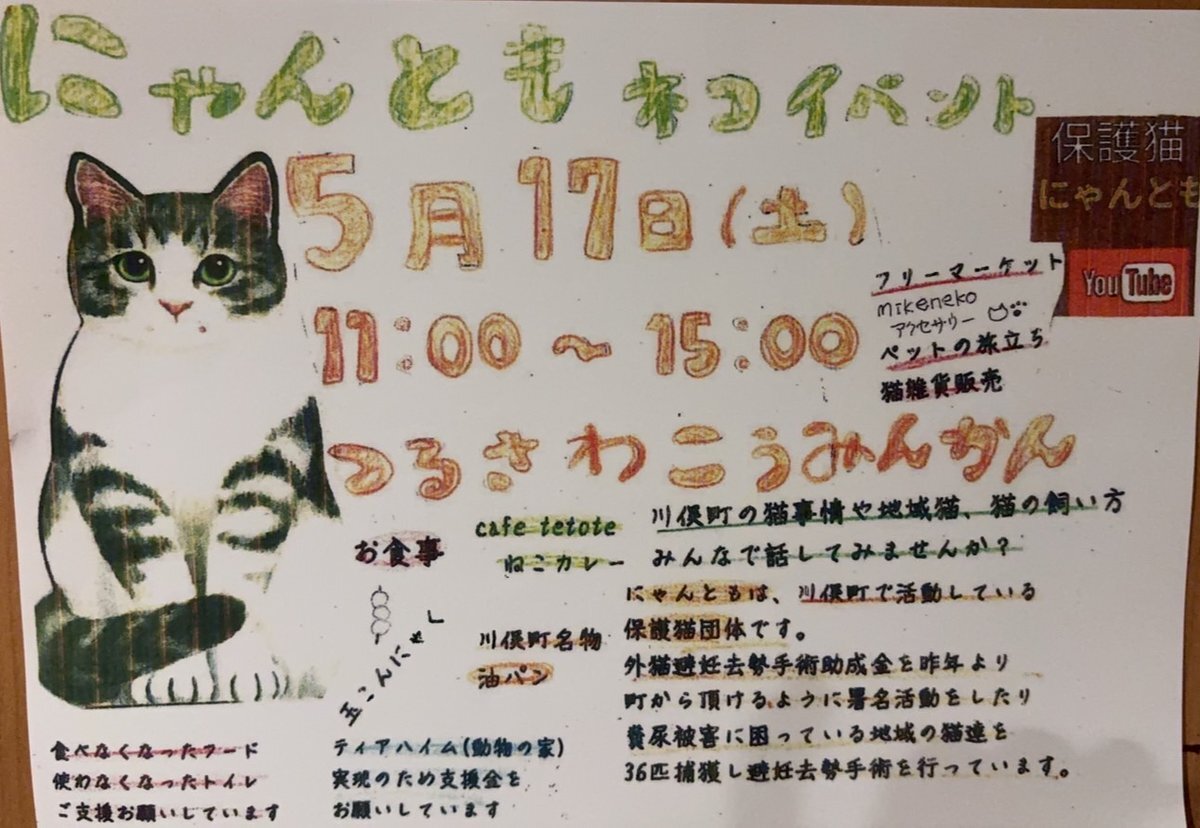 にゃんとも ネコイベント
保護猫
にゃんとも
YouTube
5月17日(土)
11:00～15:00
フリーマーケット
mikeneko
アクセサリー
ペットの旅立ち
猫雑貨販売
つるさわこうみんかん
お食事
玉こんにゃく
cafe tetote
ねこカレー
川俣町名物
油パン
川俣町の猫事情や地域猫、猫の飼い方
みんなで話してみませんか?
にゃんともは、川俣町で活動している
保護猫団体です。
外猫避妊去勢手術助成金を昨年より
町から頂けるように署名活動をしたり
糞尿被害に困っている地域の猫達を
36匹捕獲し避妊去勢手術を行っています。
食べなくなったフード
使わなくなったトイレ
ご支援お願いしています
ティアハイム(動物の家)
実現のため支援金を
お願いしています